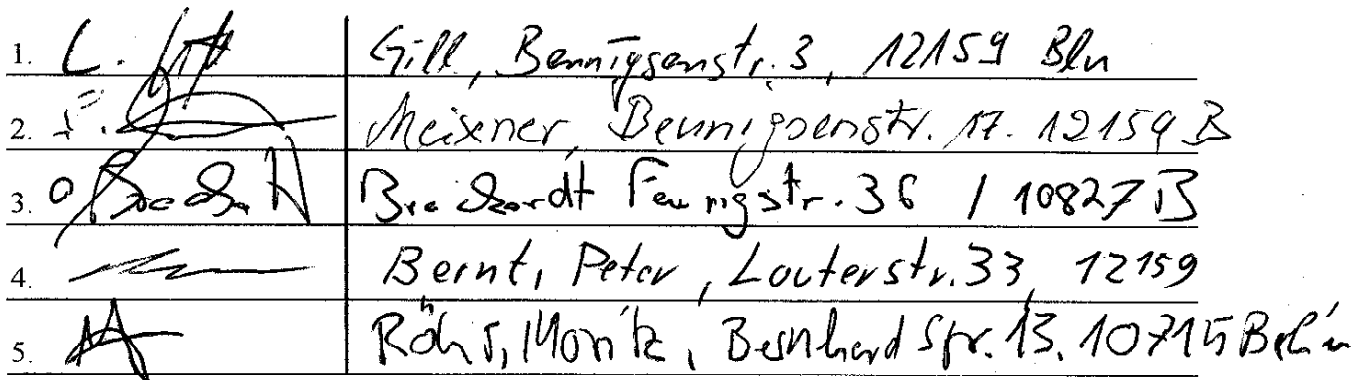 1. Gill, Bennigsenstr. 3, 12159 Bln
2. Meixner, Bennigsenstr. 17. 12159 B
3. Fennigstr. 36 / 10827 B
4. Bernt, Peter, Lauterstr. 33, 12159
5. Röhrs, Moritz, Bernhardstr. 13, 10715 Berlin